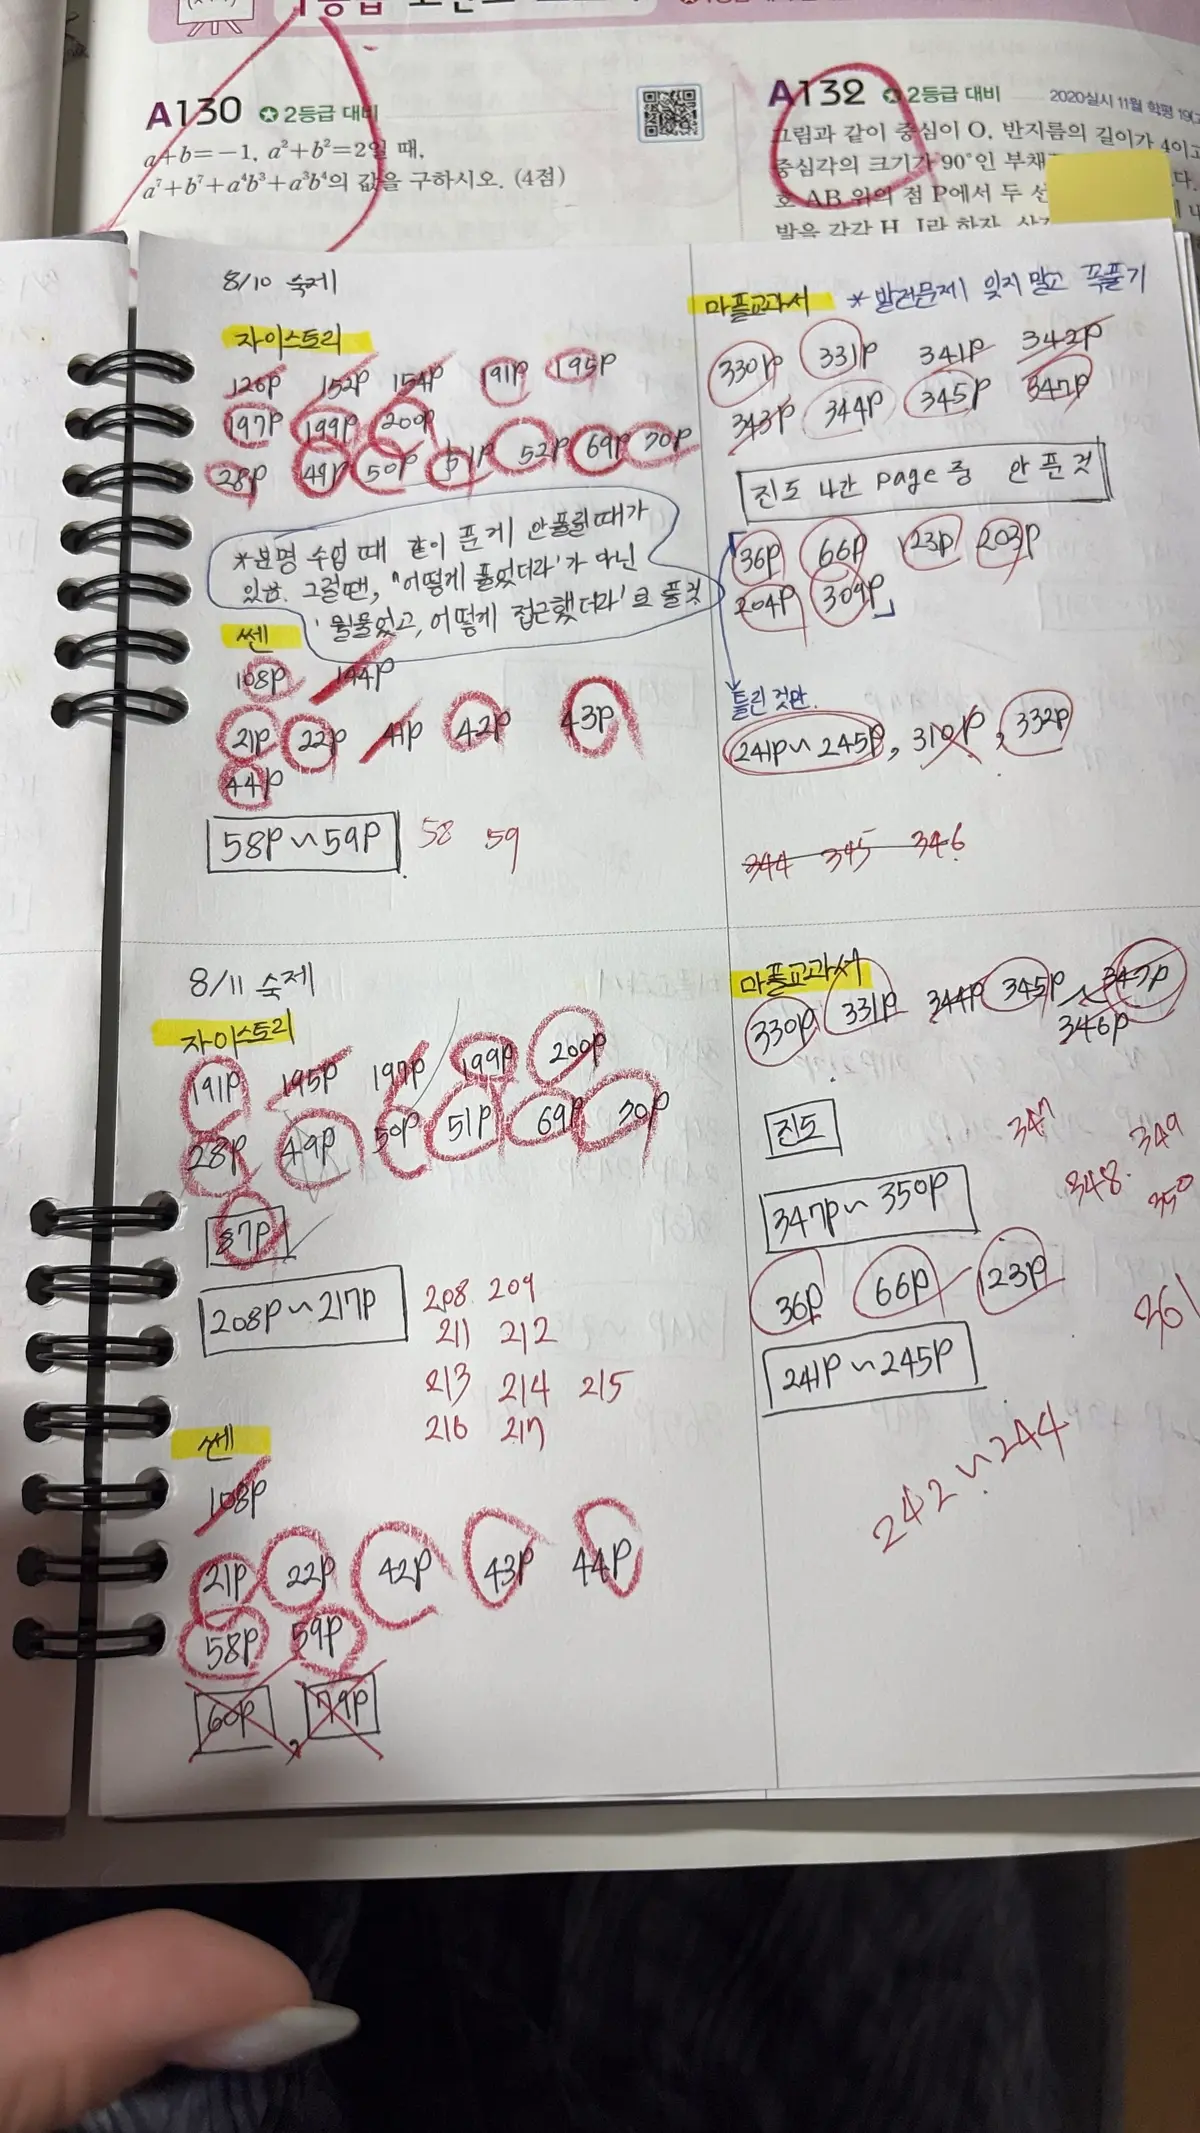 A130 ✪ 2등급 대비
a+b=-1, a²+b²=2일 때,
a⁷+b⁷+a⁴b³+a³b⁴의 값을 구하시오. (4점)
A132 ✪ 2등급 대비
2020실시 11월 학평 19
그림과 같이 중심이 O, 반지름의 길이가 4이고
중심각의 크기가 90°인 부채
호 AB 위의 점 P에서 두 선
발을 각각 H, I라 하자.
8/10 숙제
자이스토리
126p 152p 154p 191p 195p
197p 199p 200p
28p 49p 50p 51p 52p 69p 70p
*분명 수업 때 같이 푼게 안풀릴때가
있음. 그럴땐, "어떻게 풀었더라'가 아닌
'뭘물었고, 어떻게 접근했더라'로 풀것
쎈
108p 144p
21p 22p 41p 42p 43p
44p
58p ~ 59p 58 59
마플교과서 *발전문제 잊지 말고 꼭풀기
330p 331p 341p 342p
343p 344p 345p 347p
진도 나간 page 중 안 푼 것
36p 66p 123p 203p
204p 309p
틀린 것만.
241p ~ 245p, 310p, 332p
344 345 346
8/11 숙제
자이스토리
191p 195p 197p 199p 200p
28p 49p 50p 51p 69p 70p
87p
208p ~ 217p 208 209
211 212
213 214 215
216 217
쎈
108p
21p 22p 42p 43p 44p
58p 59p
60p, 79p
마플교과서
330p 331p 344p 345p 347p
346p
진도
347 349
347p ~ 350p 348. 350
36p 66p 123p
261
241p ~ 245p
242 ~ 244